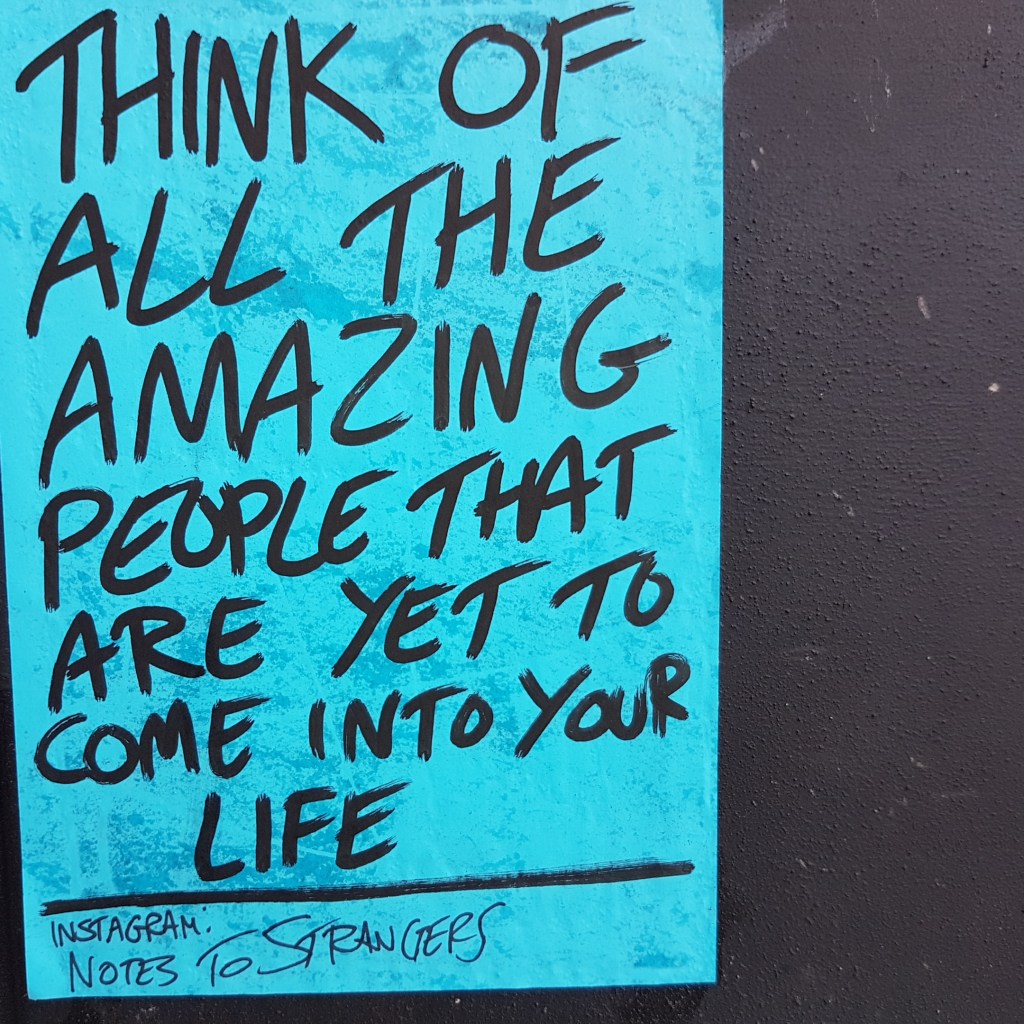 THINK OF
ALL THE
AMAZING
PEOPLE THAT
ARE YET TO
COME INTO YOUR
LIFE
INSTAGRAM:
NOTES TO STRANGERS